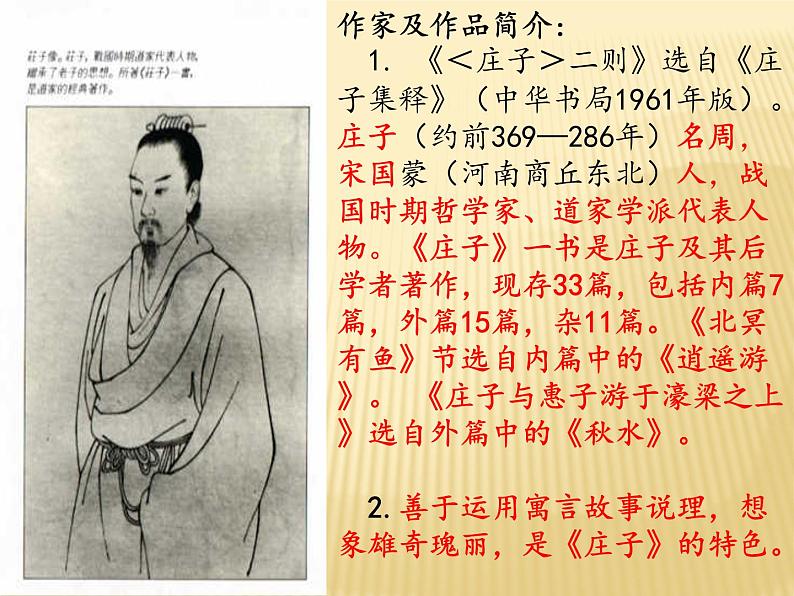 莊子像。莊子，戰國時期道家代表人物，
繼承了老子的思想。所著《莊子》一書，
是道家的經典著作。
作家及作品简介：
1. 《＜庄子＞二则》选自《庄
子集释》（中华书局1961年版）。
庄子（约前369—286年）名周，
宋国蒙（河南商丘东北）人，战
国时期哲学家、道家学派代表人
物。《庄子》一书是庄子及其后
学者著作，现存33篇，包括内篇7
篇，外篇15篇，杂11篇。《北冥
有鱼》节选自内篇中的《逍遥游
》。 《庄子与惠子游于濠梁之上
》选自外篇中的《秋水》。
2.善于运用寓言故事说理，想
象雄奇瑰丽，是《庄子》的特色。